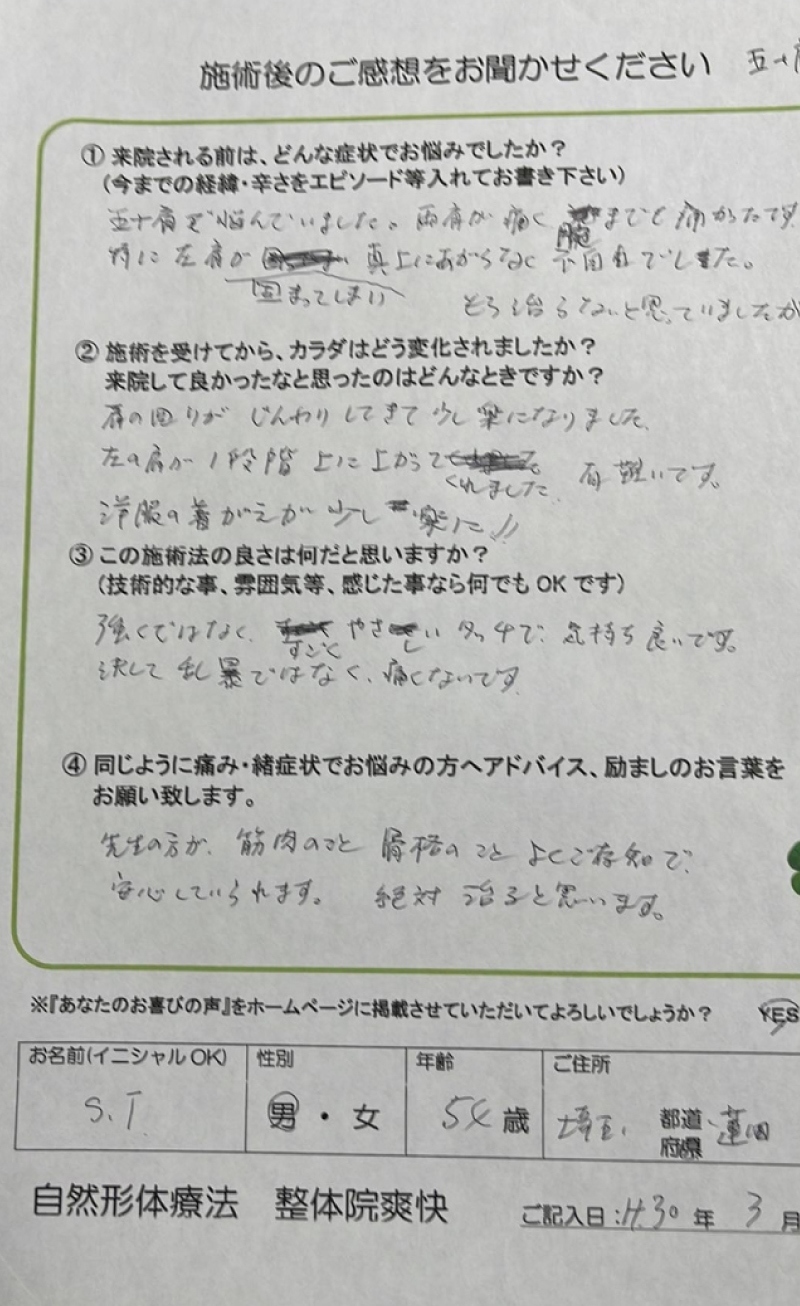 施術後のご感想をお聞かせください 五十肩
① 来院される前は、どんな症状でお悩みでしたか？
（今までの経緯・辛さをエピソード等入れてお書き下さい）
五十肩で悩んでいました。両肩が痛く腕までも痛かったです
特に左肩が固まってしまい真上にあがらなく不自由でしました。
もう治らないと思っていましたが
② 施術を受けてから、カラダはどう変化されましたか？
来院して良かったなと思ったのはどんなときですか？
肩の回りがじんわりしてきて少し楽になりました。
左の肩が1段階上に上がってくれました。有難いです。
洋服の着がえが少し楽に!!
③ この施術法の良さは何だと思いますか？
（技術的な事、雰囲気等、感じた事なら何でもOKです）
強くではなく、すごくやさしいタッチで、気持ち良いです。
決して乱暴ではなく、痛くないです
④ 同じように痛み・緒症状でお悩みの方へアドバイス、励ましのお言葉を
お願い致します。
先生の方が、筋肉のこと 骨格のこと よくご存知で、
安心していられます。 絶対 治ると思います。
※『あなたのお喜びの声』をホームページに掲載させていただいてよろしいでしょうか？ YES
お名前(イニシャルOK) 性別 年齢 ご住所
S.T 男・女 54歳 埼玉 都道府県 蓮田
自然形体療法 整体院爽快 ご記入日：H.30年 3月